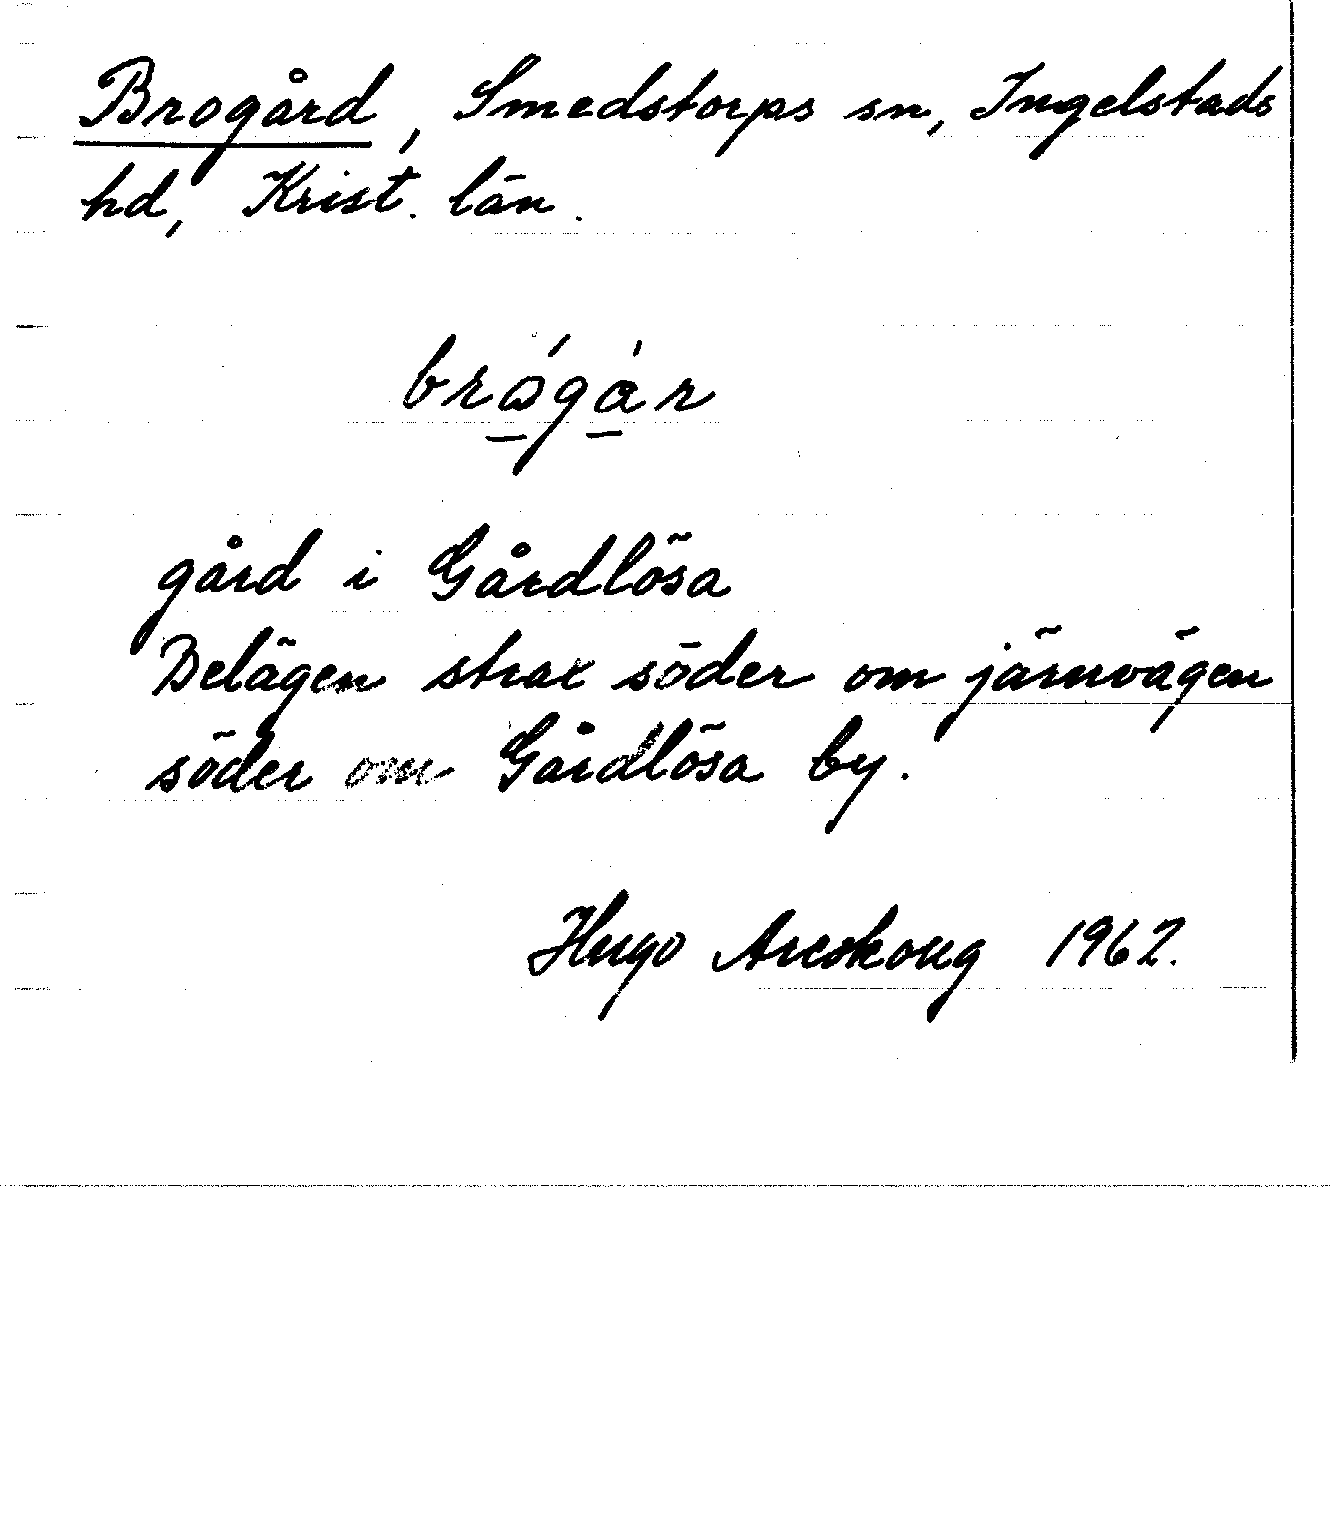 Brogård, Smedstorps sn, Ingelstads
hd, Krist. län.
brǫ́gą̀r
gård i Gårdlösa
Belägen strax söder om järnvägen
söder om Gårdlösa by.
Hugo Areskoug 1962.